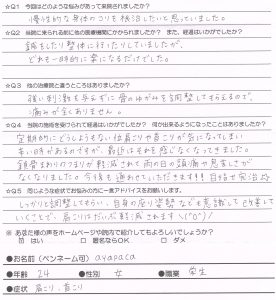 ☆Q1 今回はどのような悩みがあって来院されましたか?
慢性的な身体のコリを根治したいと思っていました。
☆Q2 当院に来られる前に他の医療機関にかかられましたか? また、経過はいかがでしたか?
鍼をしたり整体に行ったりしていましたが、
どれも一時的に楽になるだけでした。
☆Q3 他の治療院と違うところはありましたか?
強い刺激も与えずに骨のゆがみを調整してもらえるので、
痛みが全くありません。
☆Q4 当院の施術を受けられて経過はいかがでしたか? 何か出来るようになったことはありましたか?
定期的にどうしようもない位肩こりや首こりが気になってしまい
辛い時があるのですが、最近はそれを感じなくなってきました。
鎖骨まわりのつまりが軽減されて雨の日の頭痛や息苦しさが
なくなりました。今後も通わせていただきます!!
☆Q5 同じような症状でお悩みの方に一言アドバイスをお願いします。
しっかりと調整してもらい、自身の座り姿勢なども意識して改善して
いくことで、肩こりはだいぶ軽減されます\(^o^)/
※ あなた様の声をホームページや院内で紹介してもよろしいでしょうか?
はい □ 匿名ならOK □ ダメ
●お名前(ペンネーム可) ayapaca
●年齢 24 ●性別 女 ●職業 学生
●症状 肩こり、首こり